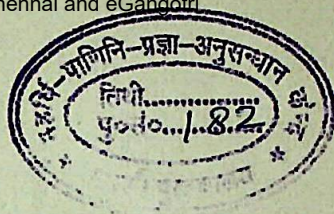 Chennai and eGangotri
महर्षि-पाणिनि-प्रज्ञा-अनुसन्धान
निधी..........
पु०सं०...182